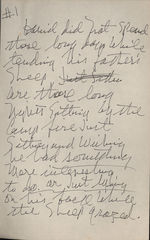 #1
David did not spend
those long days while
tending his father's
sheep, Just Sitting
are those long
nights sitting by the
camp fire Just
Sitting and Wishing
he had something
more interesting
to do, or Just laying
on his back While
the Sheep grazed.